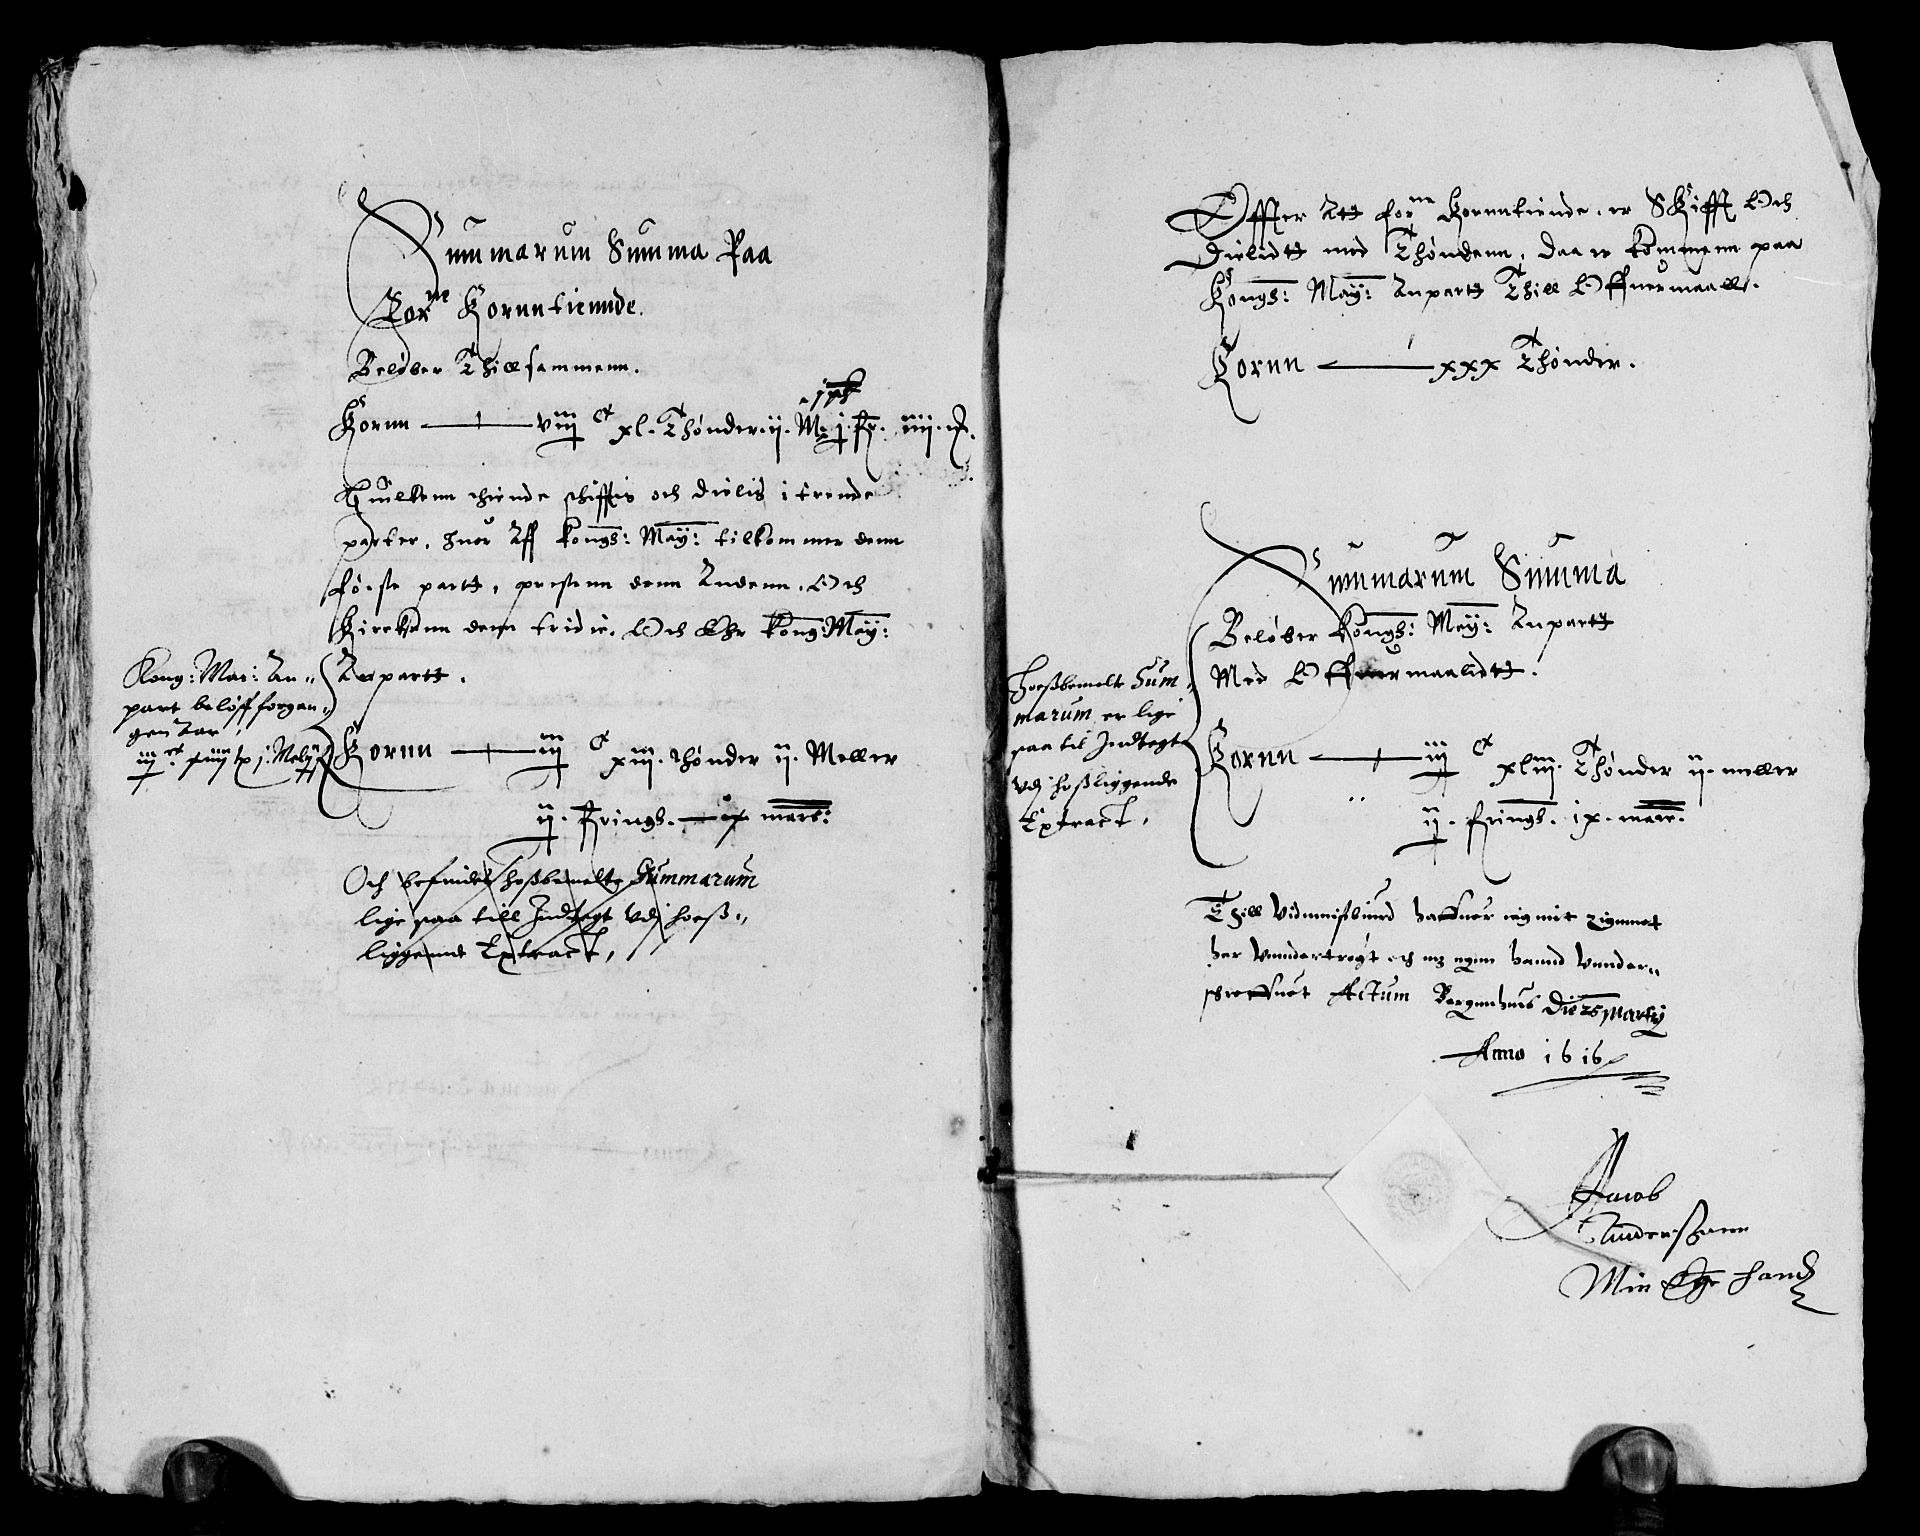 Summarum Summa Paa
Forne Kornntiennde.
Beløber Thillsammenn.
Kornn — viij C xl. Thønder. ij. Me j. fr. iiij.
Huilkenn thiende schifftis och dielis i trende
parter, huor Aff kongs: May: tilkommer denn
første partt, prestenn denn Andenn, Och
Kirckenn denn tridie, Och Ehr kong: May:
Anpartt.
Kong: Mai: An„
part beløff forgan„
gen Aar
Kornn — iiij C xiij. thønder ij. Meller
ij. frings. — ix marc:
Och befindes hoßbemelte Summarum
lige paa till Indtegt vdj hoeß„
liggennde Extract,
Offuer Att forne Kornntiende, er Skifft Och
Dielidtt med Thøndenn, Daa er kommenn paa
Kongs: May: Anpartt Thill Offuermaall.
Kornn — xxx Thønder.
Summarum Summa
Beløber kongs: May: Anpartt
Med Offuermaalidtt.
hoeßbemelte Sum„
marum er lige
paa til Indtegt
vdj hoßliggende
Extract,
Kornn — iiij C xliij. Thønder ij. meller
ij. frings. ix. marc.
Thill Vidnnisbiurd haffuer ieg mit Zignnet
her vnndertrøgt och mz egenn haannd vnnder„
schreffuet Actum Bergennhuus Die 25 Martij
Anno 1616
Jacob
Anderßenn
Min Egen handt